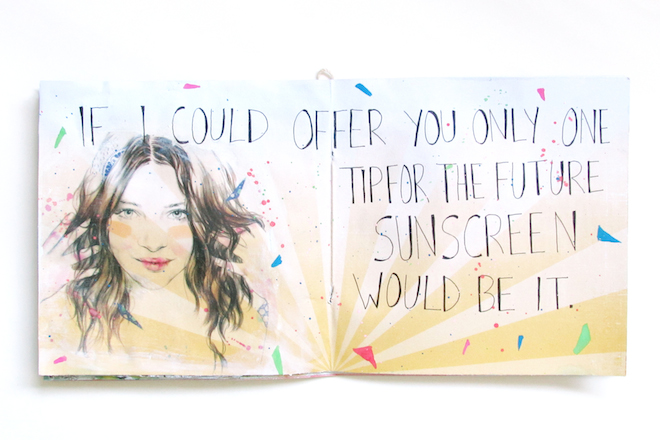 IF I COULD OFFER YOU ONLY ONE
TIP FOR THE FUTURE
SUNSCREEN
WOULD BE IT.